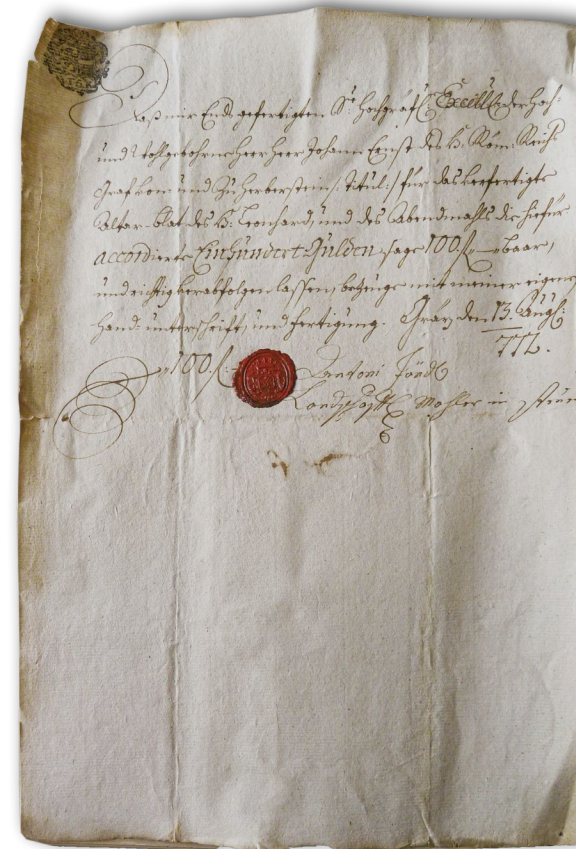 Daß mir Ends gefertigten Sr. Hochgräfl. Excell. der Hoch-
und Wohlgebohrne Herr Herr Johann Ernst des H. Röm. Reichs
Graf von und zu Herberstein /: Titul :/ für das verfertigte
Altar-blat des H. Leonhard, und des Abendmahls die hiefür
accordierte Einhundert Gulden, sage 100 f. baar,
und richtig verabfolgen lassen, bezeuge mit meiner eigenen
Hand-unterschrift, und fertigung. Gräz den 13. Aug.
772.
100 f. Antoni Jandl
Landschaftl. Mahler in Steuer